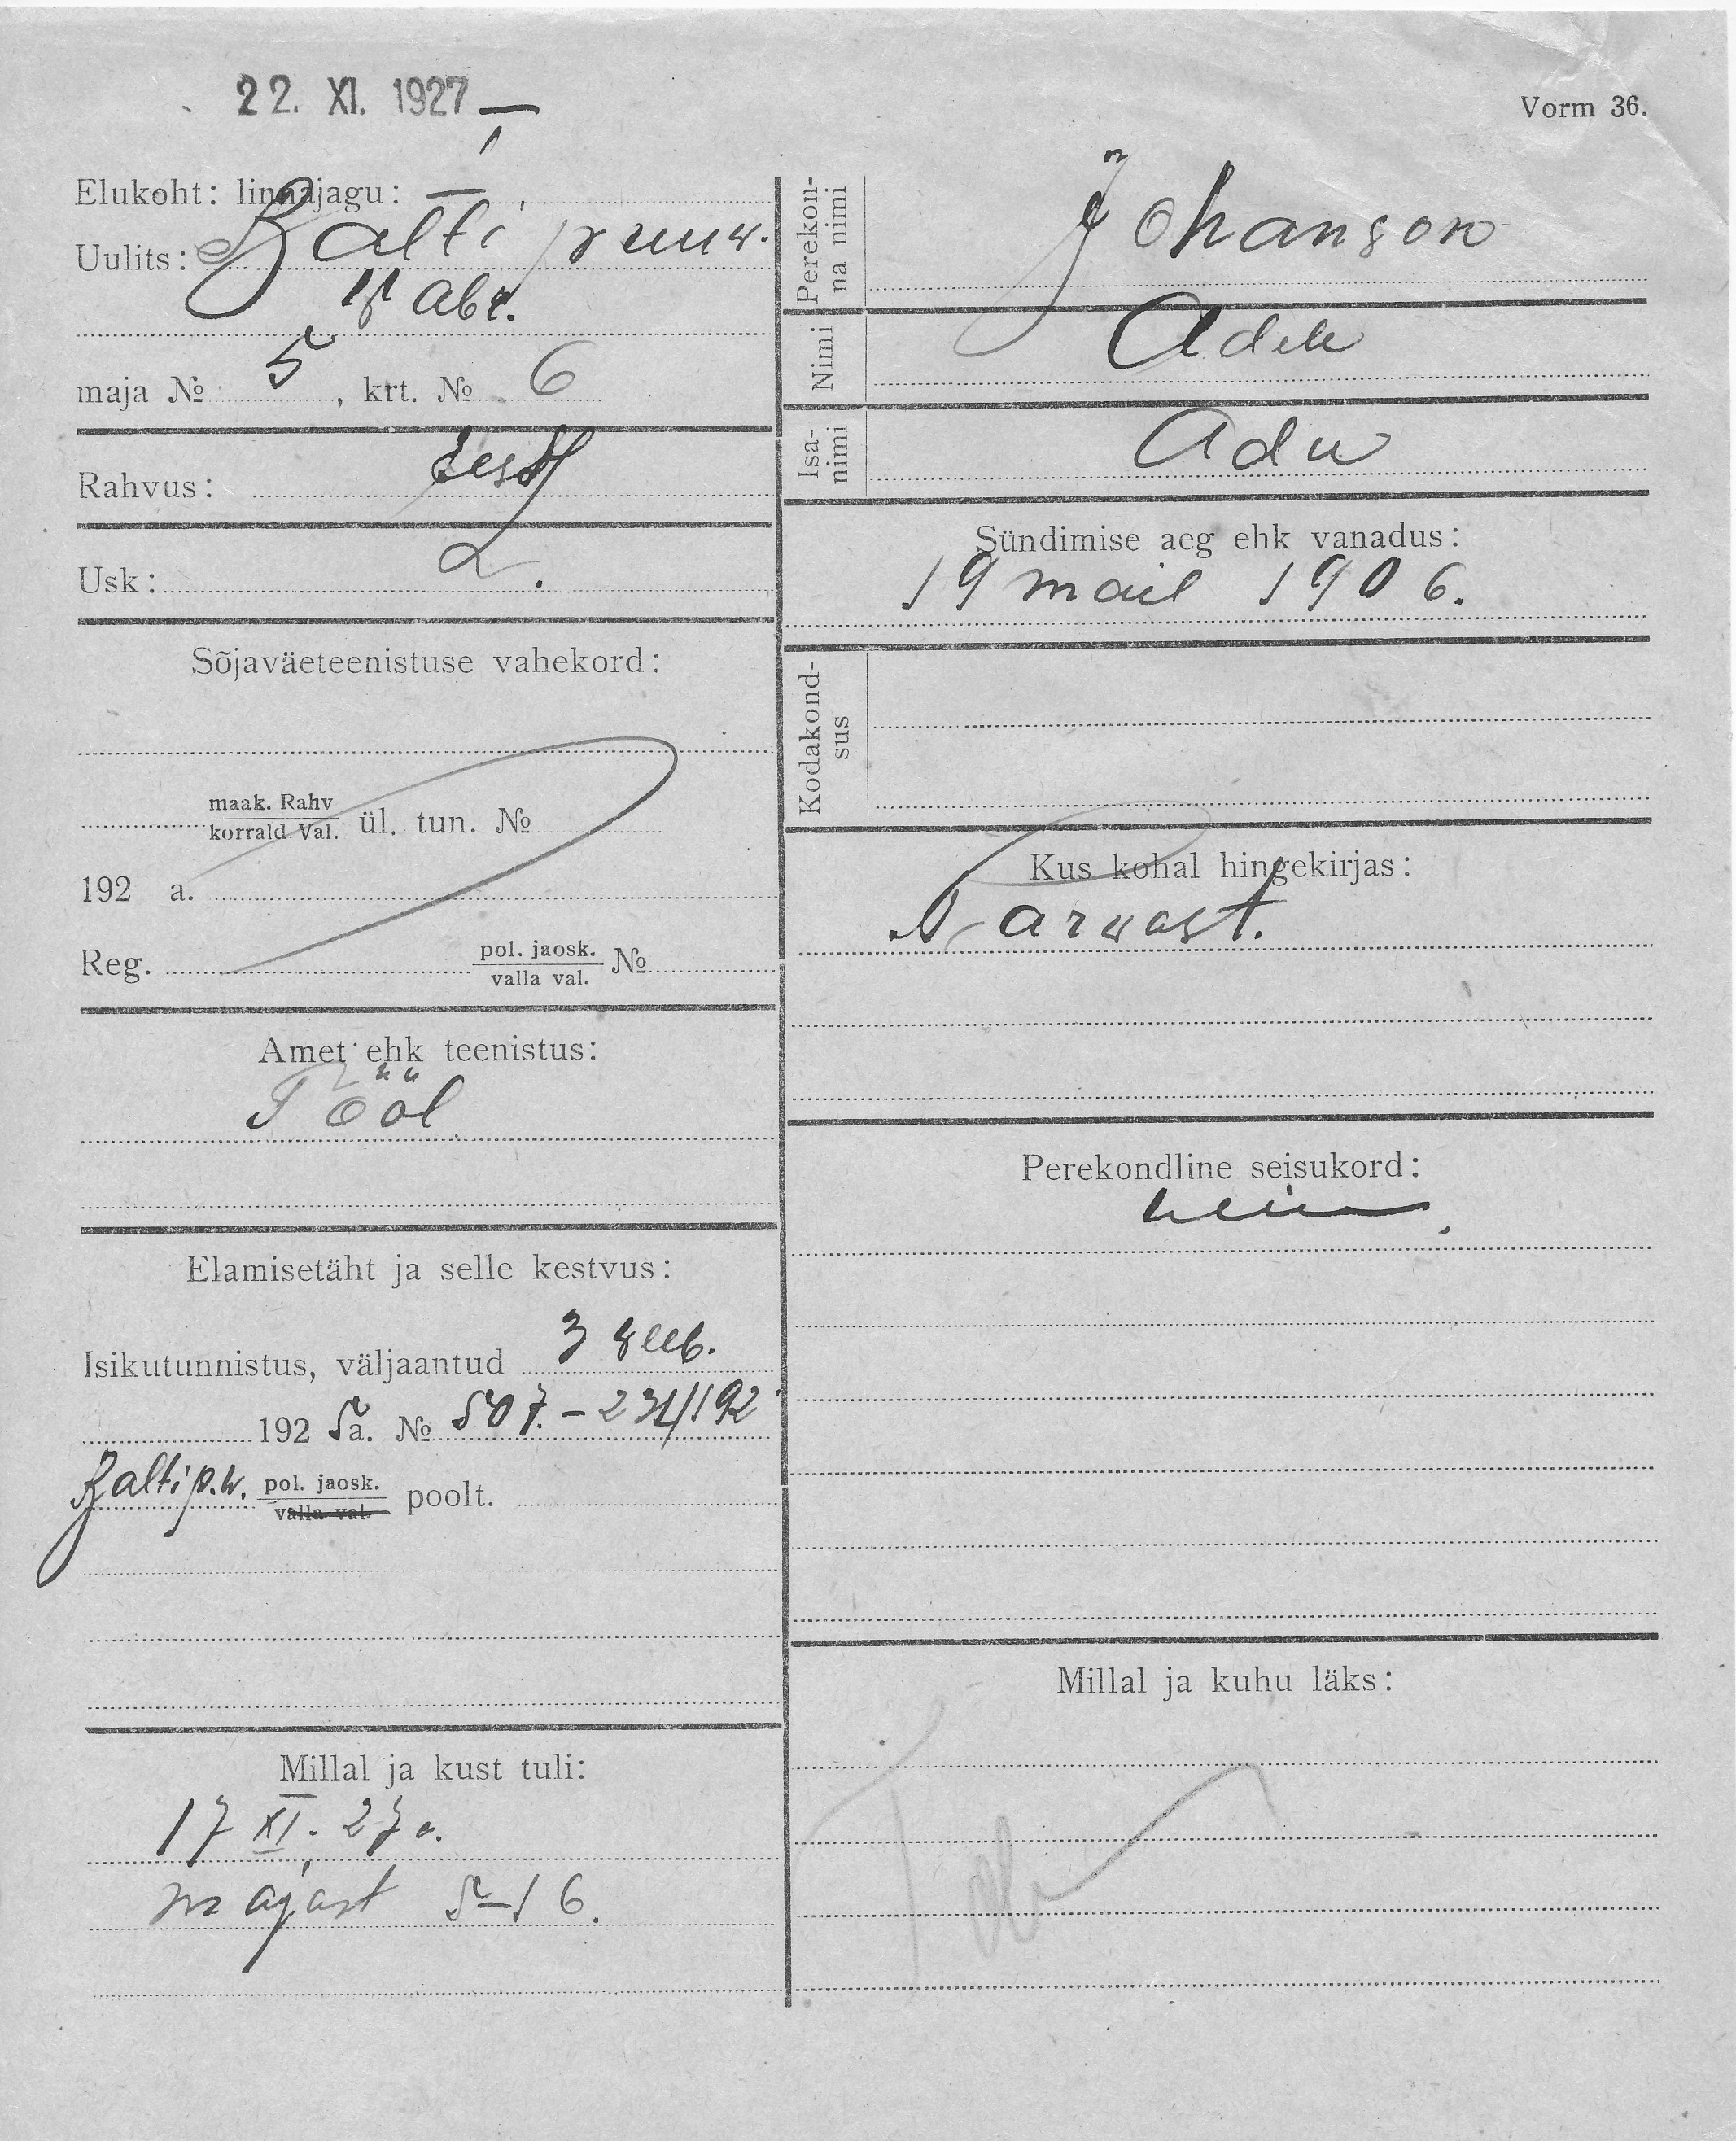 22. XI. 1927
Vorm 36.
Elukoht: linnajagu: —
Uulits: Balti puuw.
wabr.
maja № 5, krt. № 6
Rahvus: Eesti
Usk: L.
Sõjaväeteenistuse vahekord:
maak. Rahv
korrald. Val. ül. tun. №
192 a.
Reg. pol. jaosk.
valla val. №
Amet ehk teenistus:
Tööl
Elamisetäht ja selle kestvus:
Isikutunnistus, väljaantud 3 weeb.
192 5 a. № 507.-231/192
Balti p.w. pol. jaosk.
valla val. poolt.
Millal ja kust tuli:
17 XI. 27 a.
majast 5-16.
Perekon-
na nimi
Johanson
Nimi
Adele
Isa-
nimi
Adu
Sündimise aeg ehk vanadus:
19 mail 1906.
Kodakond-
sus
Kus kohal hingekirjas:
Narwast.
Perekondline seisukord:
Millal ja kuhu läks: